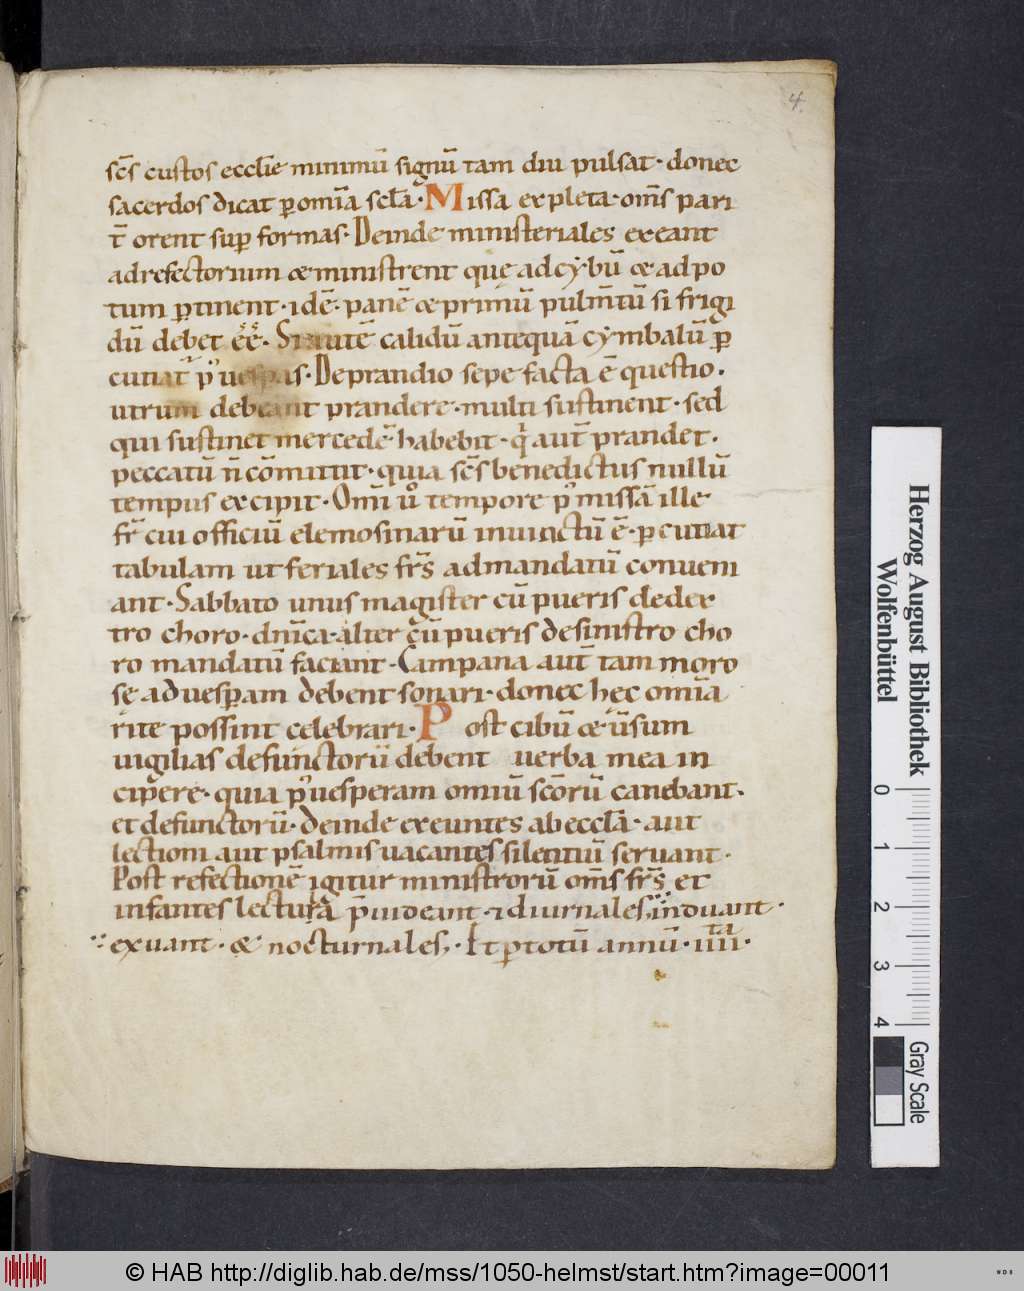 4.
scs̄ custos eccłie minimū signū tam diu pulsat · donec
sacerdos dicat ꝑ omīa scła · Missa expleta · om̄s pari
t̄ orent suꝑ formas · Deinde ministeriales exeant
ad refectorium & ministrent quę ad cybū & ad po
tum ꝑtinent · idē · panē & primū pulm̄tū si frigi
dū debet ēē · Si autē calidū antequā cymbalū ꝑ
cutiat͛ p᷒ uesꝑas · De prandio sepe facta ē questio ·
utrum debeant prandere · multi sustinent · sed
qui sustinet mercedē habebit · qͥ aut̄ prandet ·
peccatū n̄ cōmittit · quia scs̄ benedictus nullū
tempus excipit · Omī uͦ tempore p᷒ missā ille
fr̄ cui officiū elemosinarū iniunctū ē · ꝑcutiat
tabulam ut feriales frs̄ ad mandatū conueni
ant · Sabbato unus magister cū pueris de dex
tro choro · dnīca · alter cū pueris de sinistro cho
ro mandatū faciant · Campana aut̄ tam moro
se ad uesꝑam debent sonari · donec hec omīa
rite possint celebrari · Post cibū & ūsum
uigilias defunctorū debent uerba mea in
cipere · quia p᷒ uesperam omiū scōrū canebant ·
et defunctorū · deinde exeuntes ab eccłā · aut
lectioni aut psalmis uacantes silentiū seruant ·
Post refectionē igitur ministrorū om̄s frs̄ et
infantes lecturā p̄uideant · & diurnales induant ·
exuant · & nocturnales · Et ꝑ totū annū · iiiiᵗᵃ ·
Herzog August Bibliothek
Wolfenbüttel
0 1 2 3 4
Gray Scale
© HAB http://diglib.hab.de/mss/1050-helmst/start.htm?image=00011